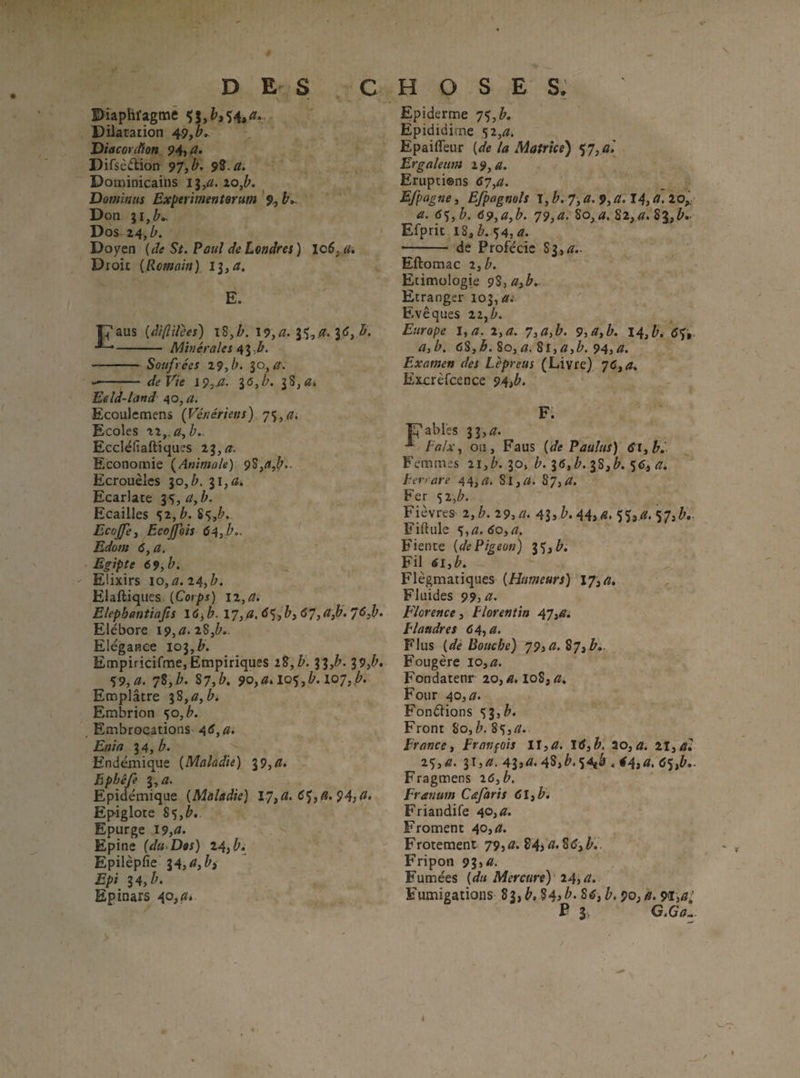 DES CHOSES.
Diaphragme 53,b,54,a.
Dilatation 49,b.
Diacordion 94,a.
Difsèction 97,b. 98.a.
Dominicains 13,a. 20,b.
Dominus Experimentorum 9,b.
Don 31,b.
Dos 24,b.
Doyen (de St. Paul de Londres) 106,a.
Droit (Romain) 13,a.
E.
Eaus (distilées) 18,b. 19,a. 35,a. 36,b.
——— Minérales 43.b.
——— Soufrées 29,b. 30,a.
——— de Vie 19,a. 36,b. 38,a.
Eeld-land 40,a.
Ecoulemens (Vénériens) 75,a.
Ecoles 22,a,b.
Eccléfiaftiques 23,a.
Economie (Animale) 98,a,b.
Ecrouèles 30,b. 31,a.
Ecarlate 35,a,b.
Ecailles 52,b. 85,b.
Ecoffe, Ecoffois 64,b.
Edom 6,a.
Egipte 69,b.
Elixirs 10,a. 24,b.
Elaftiques (Corps) 12,a.
Elephantiafis 16,b. 17,a. 65,b, 67,a,b. 76,b.
Elébore 19,a. 28,b.
Elégance 103,b.
Empiricifme, Empiriques 28,b. 33,b. 39,b.
59,a. 78,b. 87,b. 90,a. 105,b. 107,b.
Emplâtre 38,a,b.
Embrion 50,b.
Embrocations 46,a.
Enia 34,b.
Endémique (Maladie) 39,a.
Ephèfe 3,a.
Epidémique (Maladie) 17,a. 65,a. 94,a.
Epiglote 85,b.
Epurge 19,a.
Epine (du Dos) 24,b.
Epilèpfie 34,a,b,
Epi 34,b.
Epinars 40,a.
Epiderme 75,b.
Epididime 52,a.
Epaiffeur (de la Matrice) 57,a.
Ergaleum 29,a.
Eruptions 67,a.
Efpagne, Efpagnols 1,b. 7,a. 9,a. 14,a. 20,
a. 65,b. 69,a,b. 79,a. 80,a. 82,a. 83,b.
Efprit 18,b. 54,a.
——— de Profécie 83,a.
Eftomac 2,b.
Etimologie 98,a,b.
Etranger 103,a.
Evêques 22,b.
Europe 1,a. 2,a. 7,a,b. 9,a,b. 14,b. 65,
a,b. 68,b. 80,a. 81,a,b. 94,a.
Examen des Lèpreus (Livre) 76,a.
Excrèfcence 94,b.
F.
Fables 33,a.
Falx, ou, Faus (de Paulus) 61,b.
Femmes 21,b. 30, b. 36,b. 38,b. 56,a.
Ferrare 44,a. 81,a. 87,a.
Fer 52,b.
Fièvres 2,b. 29,a. 43,b. 44,a. 55,a. 57,b.
Fiftule 5,a. 60,a.
Fiente (de Pigeon) 35,b.
Fil 61,b.
Flègmatiques (Humeurs) 17,a.
Fluides 99,a.
Florence, Florentin 47,a.
Flandres 64,a.
Flus (de Bouche) 79,a. 87,b.
Fougère 10,a.
Fondateur 20,a. 108,a.
Four 40,a.
Fonctions 53,b.
Front 80,b. 85,a.
France, François 11,a. 16,b. 20,a. 21,a.
25,a. 31,a. 43,a. 48,b. 54,b. 64,a. 65,b.
Fragmens 26,b.
Frænum Cæfaris 61,b.
Friandife 40,a.
Froment 40,a.
Frotement 79,a. 84,a. 86,b.
Fripon 93,a.
Fumées (du Mercure) 24,a.
Fumigations 83,b. 84,b. 86,b. 90,a. 91,a.
P 3. G.Ga-